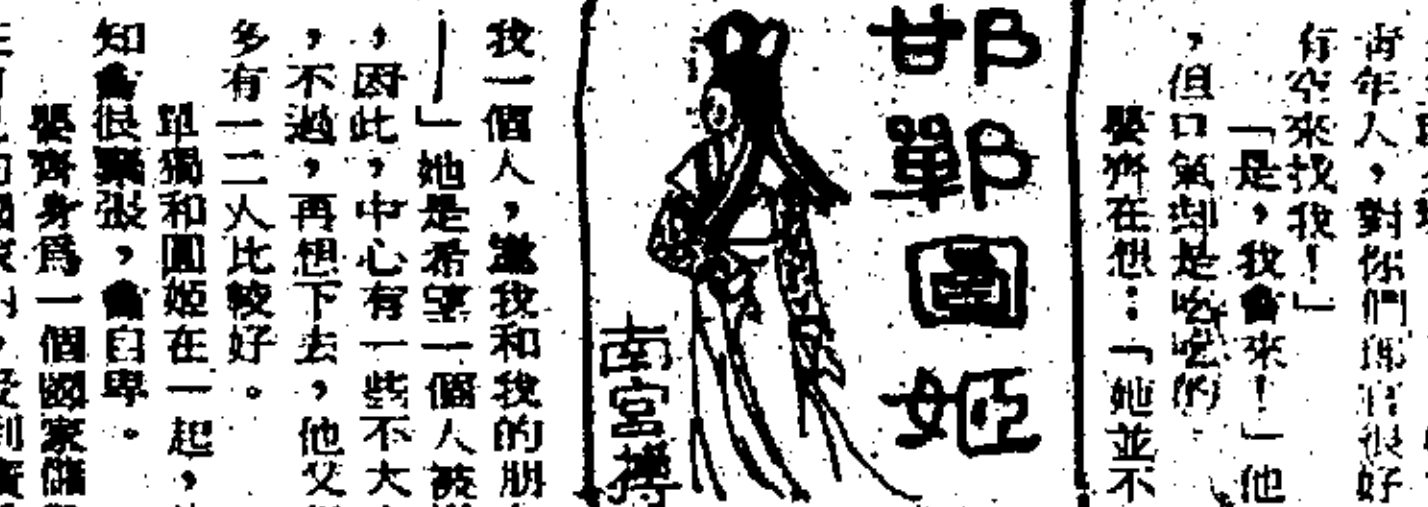 青年人，對你們
有空來找我！」
「是，我會來！」他
，但口氣却是吃吃的
嬰齊在想：「她並不
邯鄲圓姬
南宮搏
我一個人，當我和我的朋
——」她是希望一個人被
，因此，中心有一些不大
，不過，再想下去，他又
多有一二人比較好。
單獨和圓姬在一起，
知會很緊張，會自卑。
嬰齊身爲一個國家儲